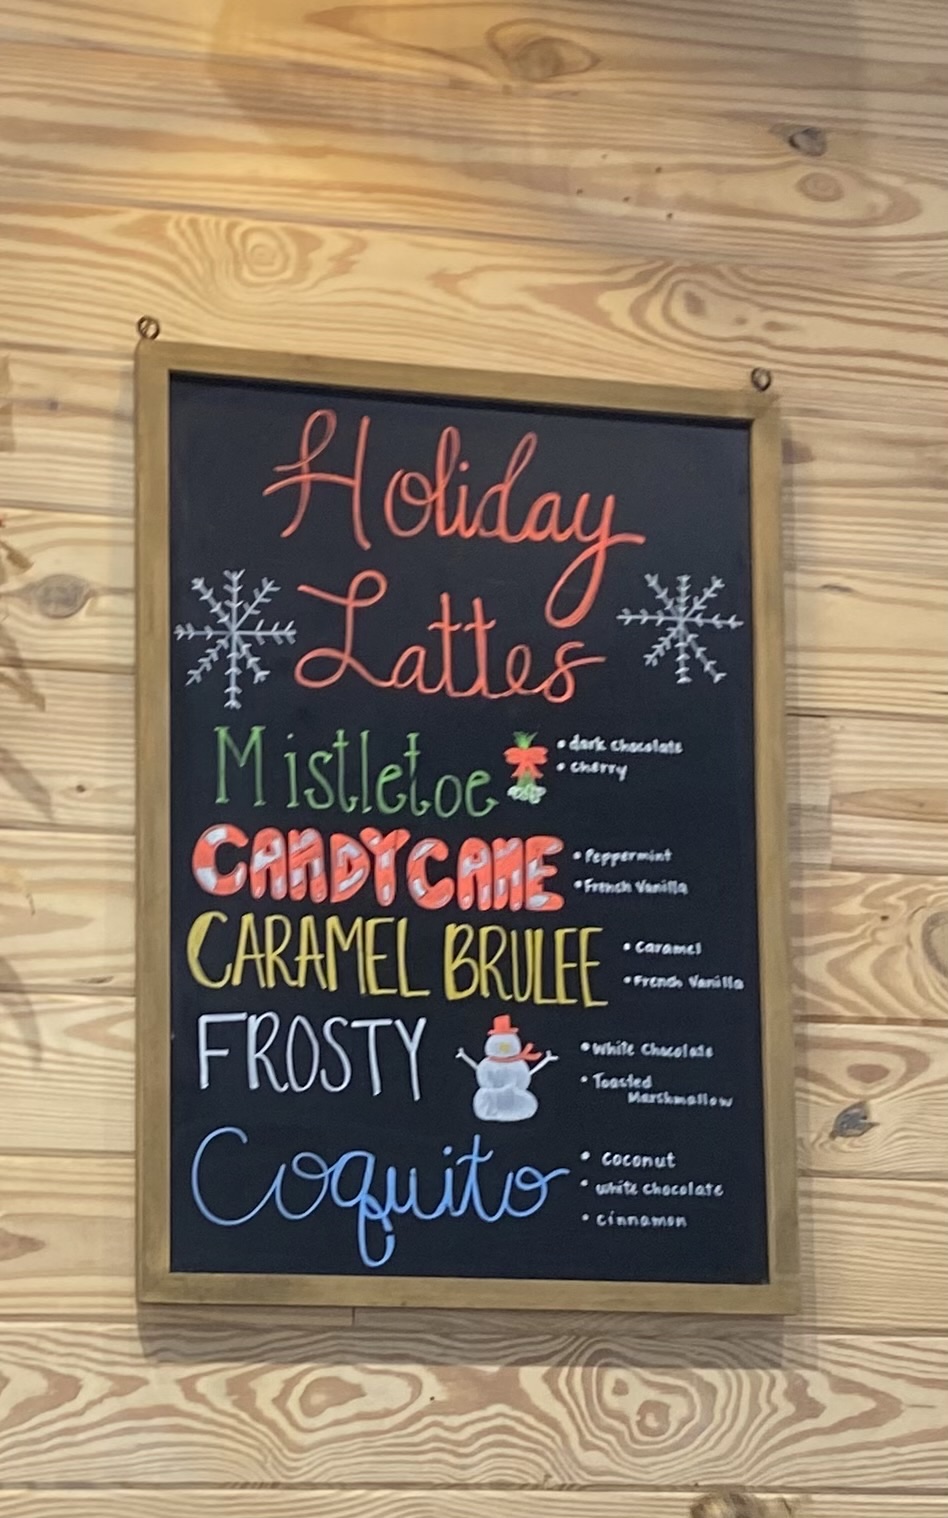 Holiday
Lattes
Mistletoe
• dark chocolate
• cherry
CANDY CANE
• Peppermint
• French Vanilla
CARAMEL BRULEE
• Caramel
• French Vanilla
FROSTY
• White Chocolate
• Toasted
Marshmallow
Coquito
• coconut
• white chocolate
• cinnamon